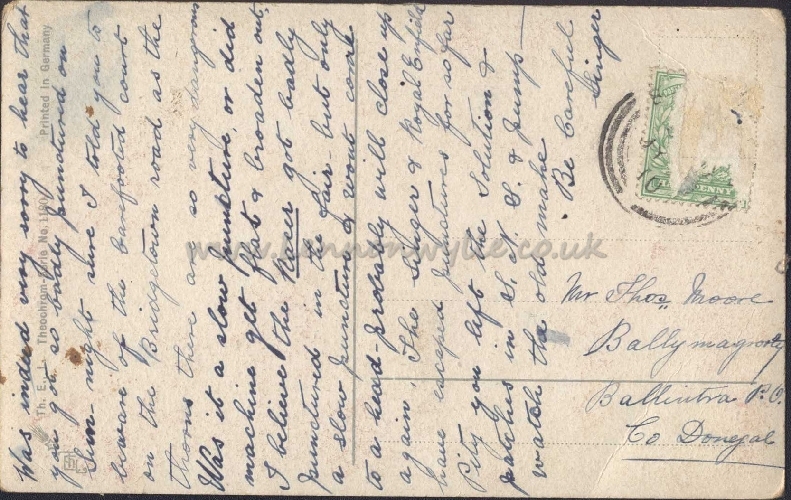 Was indeed very sorry to hear that
you got so badly punctured on
Sun-night sure I told you to
beware of the barefooted court
on the Bridgetown road as the
thorns there are so very dangrous
Was it a slow puncture, or did
machine get flat & broaden out,
I believe the Racer got badly
punctured in the fair - but only
a slow puncture & wont come
to a head - probably will close up
again, The Singer & Royal Enfield
have escaped punctures for so far
Pity you lift the Solution &
patches in S. N. S. & Pump —
watch the old make
Be Careful
Ginger
Mr Thos, Moore
Ballymagrorty
Ballintra P.O.
Co Donegal
Th. E. L. Theochrom-Serie No. 1180
Printed in Germany
PENNY
www.lennonwylie.co.uk